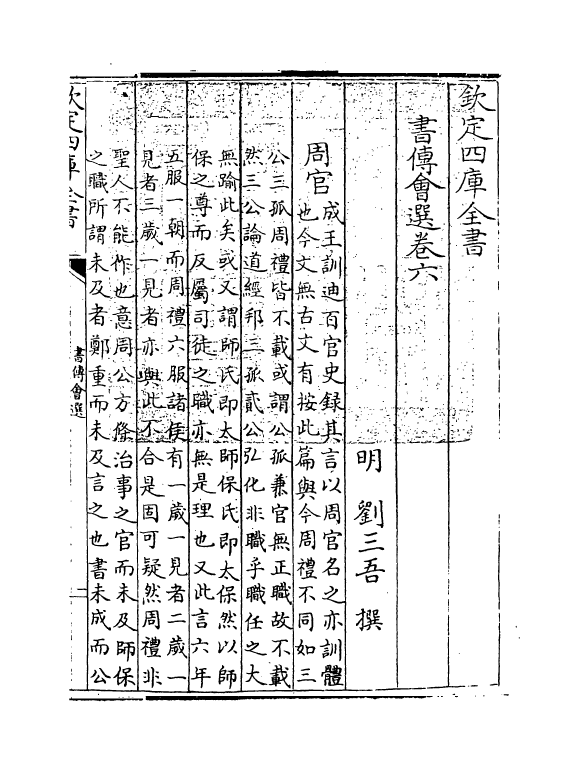 欽定四庫全書
書傳會選卷六
明 劉三吾 撰
周官
成王訓迪百官史録其言以周官名之亦訓體
也今文無古文有按此篇與今周禮不同如三
公三孤周禮皆不載或謂公孤兼官無正職故不載
然三公論道經邦三孤貳公弘化非職乎職任之大
無踰此矣或又謂師氏即太師保氏即太保然以師
保之尊而反屬司徒之職亦無是理也又此言六年
五服一朝而周禮六服諸侯有一歲一見者二歲一
見者三歲一見者亦與此不合是固可疑然周禮非
聖人不能作也意周公方條治事之官而未及師保
之職所謂未及者鄭重而未及言之也書未成而公
欽定四庫全書
書傳會選
一